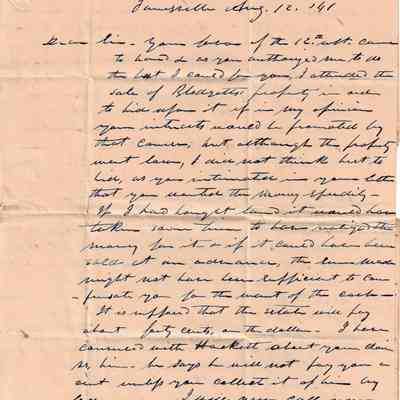 Janesville Aug. 12. '41
Dear Sir - Your favor of the 12th ult. came
to hand & as you authorized me to do
the best I could for you, I attended the
sale of Blodgetts property in order
to bid upon it if in my opinion
your interests would be promoted by
that course, but although the property
went low, I did not think best to
bid, as you intimated in your letter
that you wanted the money speedily -
If I had bought land it would have
taken some time to have realized the
money for it & if it could have been
sold at an advance, the
might not have been sufficient to com
-pensate you for the want of the cash -
It is supposed that the estate will pay
about forty cents on the dollar - I have
conversed with Hackett about your claim
vs. him - he says he will not pay you a
cent unless you collect it of him by
law